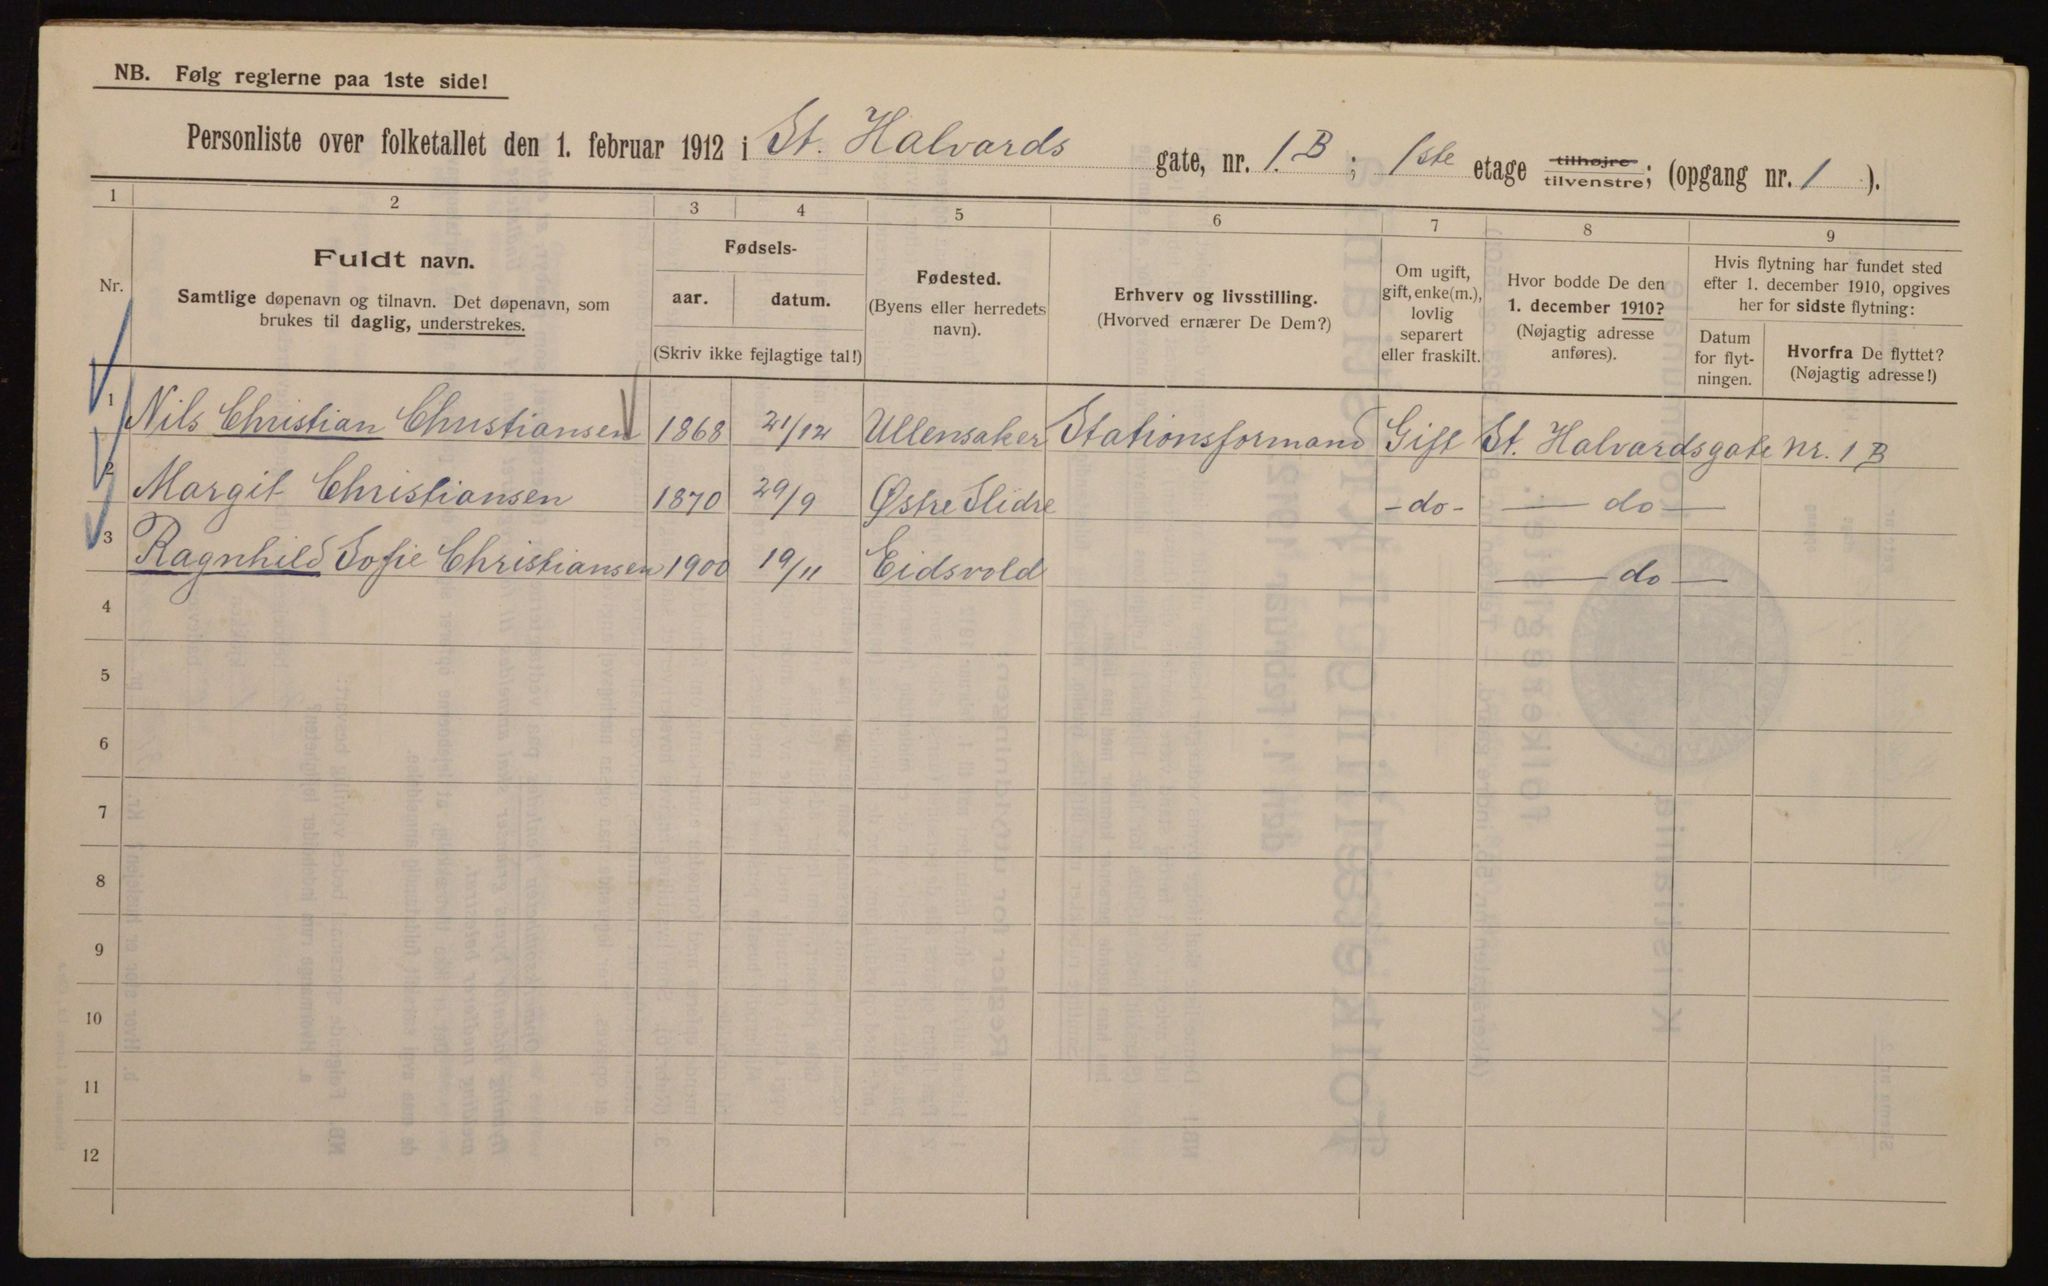 NB. Følg reglerne paa 1ste side!
Personliste over folketallet den 1. februar 1912 i St. Halvards gate, nr. 1.B ; 1ste etage tilhøjre tilvenstre; (opgang nr. 1 ).
1 2 3 4 5 6 7 8 9
Nr.
Fuldt navn.
Samtlige døpenavn og tilnavn. Det døpenavn, som
brukes til daglig, understrekes.
Fødsels-
aar. datum.
(Skriv ikke fejlagtige tal!)
Fødested.
(Byens eller herredets
navn).
Erhverv og livsstilling.
(Hvorved ernærer De Dem?)
Om ugift,
gift, enke(m.),
lovlig
separert
eller fraskilt.
Hvor bodde De den
1. december 1910?
(Nøjagtig adresse
anføres).
Hvis flytning har fundet sted
efter 1. december 1910, opgives
her for sidste flytning:
Datum
for flyt-
ningen.
Hvorfra De flyttet?
(Nøjagtig adresse!)
1 Nils Christian Christiansen 1868 21/12 Ullensaker Stationsformand Gift St. Halvardsgate Nr. 1 B
2 Margit Christiansen 1870 29/9 Østre Slidre -do- — do —
3 Ragnhild Sofie Christiansen 1900 19/11 Eidsvold — do —
4
5
6
7
8
9
10
11
12